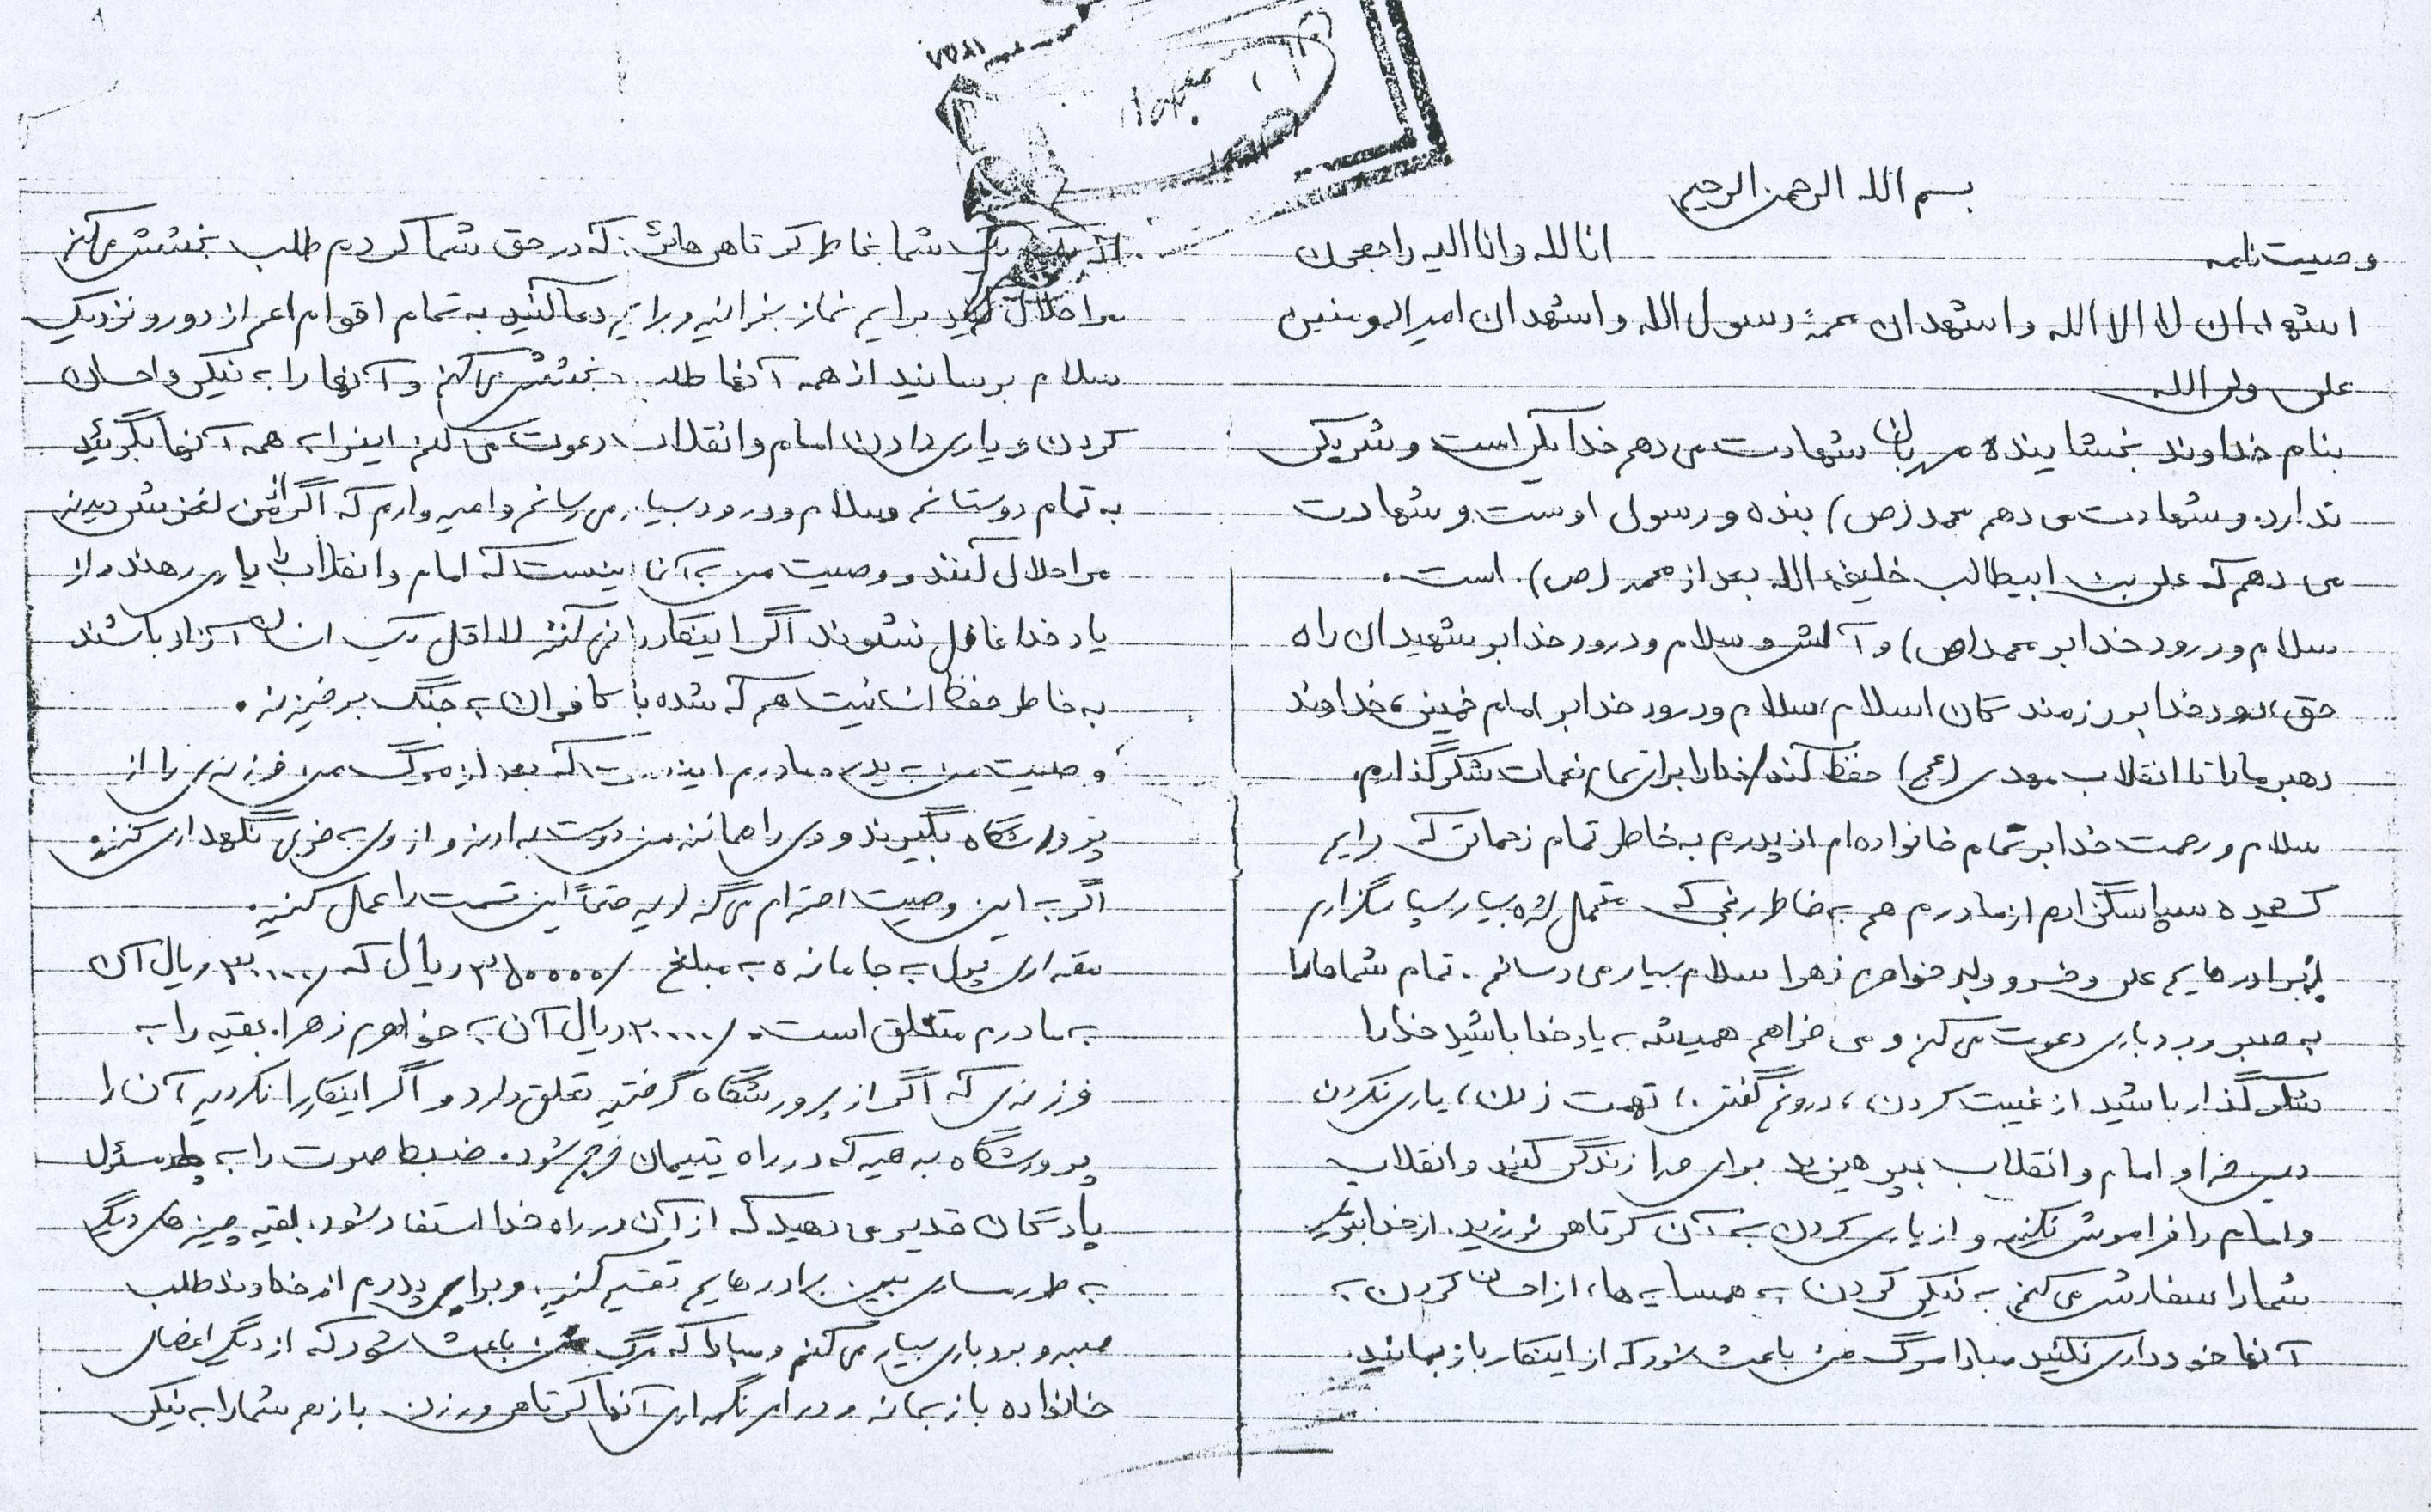 بسم الله الرحمن الرحیم
وصیت نامه
انا لله و انا الیه راجعون
اشهد ان لا اله الا الله و اشهد ان محمد رسول الله و اشهد ان امیر المومنین
علی ولی الله
بنام خداوند بخشاینده مهربان شهادت می دهم خدا یکی است و شریکی
ندارد و شهادت می دهم محمد (ص) بنده و رسول اوست و شهادت
می دهم که علی بن ابیطالب خلیفه الله بعد از محمد (ص) است.
سلام و درود خدا بر محمد (ص) و آلش و سلام و درود خدا بر شهیدان راه
حق، درود خدا بر رزمندگان اسلام، سلام و درود خدا بر امام خمینی، خداوند
رهبر ما را تا انقلاب مهدی (عج) حفظ کند خدا را برای تمام نعمات شکرگذارم،
سلام و رحمت خدا بر تمام خانواده ام از پدرم به خاطر تمام زحماتی که برایم
کشیده سپاسگزارم از مادرم هم به خاطر رنجی که متحمل شده بسیار سپاسگزارم
به برادرهایم علی و خسرو و خواهرم زهرا سلام بسیار می رسانم. تمام شماها را
به صبر و بردباری دعوت می کنم و می خواهم همیشه به یاد خدا باشید خدا را
شکرگذار باشید از غیبت کردن، دروغ گفتن، تهمت زدن، یاری نکردن
دین خدا و امام و انقلاب بپرهیزید برای خدا زندگی کنید و انقلاب
و امام را فراموش نکنید و از یاری کردن به آن کوتاهی نورزید. از خدا بترسید
شما را سفارش می کنم به نیکی کردن به همسایه ها، از احسان کردن به
آنها خودداری نکنید مبادا مرگ من باعث شود که از اینکار باز بمانید.
شما بخاطر کوتاهی هائی که در حق شما کردم طلب بخشش می کنم
مرا حلال کنید برایم نماز بخوانید و برایم دعا کنید به تمام اقوام اعم از دور و نزدیک
سلام برسانید از همه آنها طلب بخشش می کنم و آنها را به نیکی و احسان
کردن و یاری دادن امام و انقلاب دعوت می کنم اینرا به همه آنها بگوئید
به تمام دوستانم سلام و درود بسیار می رسانم و امیدوارم که اگر از من لغزشی دیدند
مرا حلال کنند و وصیت من به آنها اینست که امام و انقلاب را یاری دهند و از
یاد خدا غافل نشوند اگر اینکار را نمی کنند لااقل یک انسان آزاد باشند
به خاطر حفظ انسانیت هم که شده با کافران به جنگ برخیزند.
وصیت من به پدر و مادرم اینست که بعد از مرگ من فرزندی را از
پرورشگاه بگیرند و وی را همانند من دوست بدارند و از وی به خوبی نگهداری کنند
اگر به این وصیت احترام می گذارید حتماً این قسمت را عمل کنید.
مقداری پول به جا مانده به مبلغ ۳۵۰۰۰۰/ ریال که ۳۰۰۰۰/ ریال آن
به مادرم متعلق است. ۲۰۰۰۰/ ریال آن به خواهرم زهرا. بقیه را به
فرزندی که اگر از پرورشگاه گرفتید تعلق دارد و اگر اینکار را نکردید آن را
پرورشگاه بدهید که در راه یتیمان خرج شود. ضبط صوت را به مسئول
پادگان قدیر می دهید که از آن در راه خدا استفاد شود. بقیه چیزهای دیگر
به طور مساوی بین برادرهایم تقسیم کنید. و برای پدرم از خداوند طلب
صبر و بردباری بسیار می کنم و مبادا که مرگ من باعث شود که از دیگر اعضای
خانواده باز بماند و در امر نگهداری آنها کوتاهی ورزد باز هم شما را به نیکی